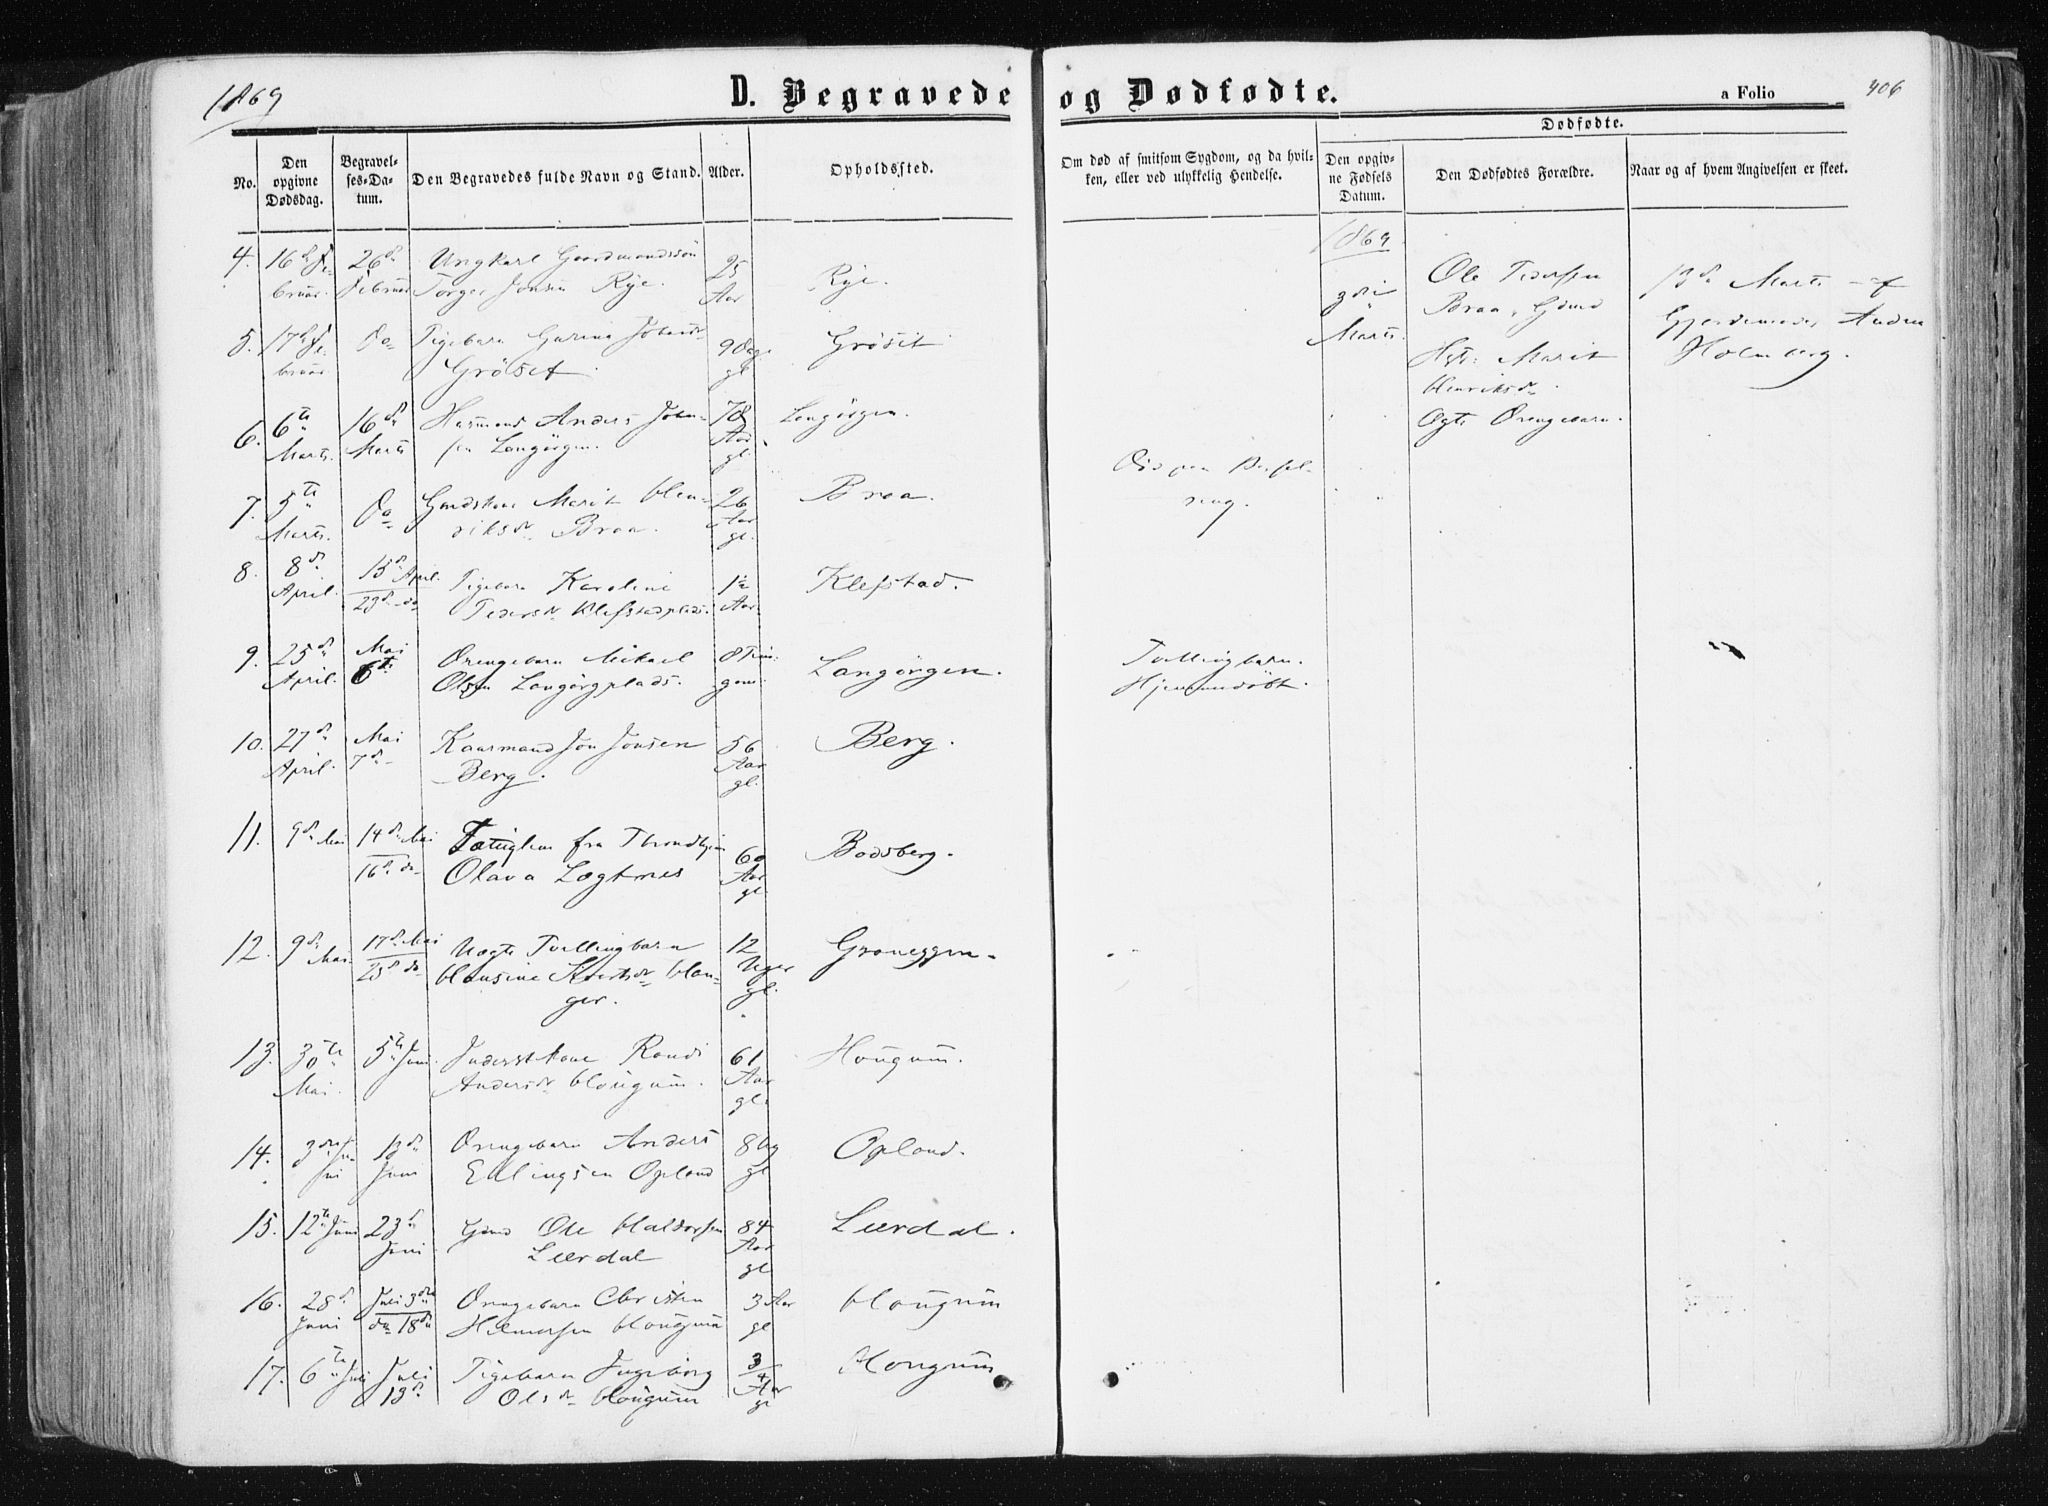 1869
D. Begravede og Dødfødte.
a Folio 406
No.
Den opgivne Dødsdag.
Begravelses-Datum.
Den Begravedes fulde Navn og Stand.
Alder.
Opholdssted.
Om død af smitsom Sygdom, og da hvilken, eller ved ulykkelig Hendelse.
Dødfødte.
Den opgivne Fødsels Datum.
Den Dødfødtes Forældre.
Naar og af hvem Angivelsen er skeet.
4. 16de Februar. 26de Februar Ungkarl Gaardmandssøn 25 Aar Rye.
Torger Jonsen Rye.
5. 17de Februar Do Pigebarn Johnsdr 9 Dage gl. Grøset
Grøset.
6. 6te Marts. 16de Marts Huusmand Anders John- 78 Aar gl. Langørgen.
sen Langørgen.
7. 5te Marts. Do Gmdskone Marit Hen- 26 Aar gl. Braa.
riksdr Braa.
8. 8de April. 15de April. 23de do Pigebarn Karoline 1½ Aar. Klefstad.
Pedersdr Klefstadplads.
9. 25de April. Mai 6te Drengebarn Mikael 8 Timer gam. Langørgen. Tvillingbarn.
Olsen Langørgplads. Hjemmedøbt.
10. 27de April. Mai 7de Kaarmand Jon Jonsen 56 Aar gl. Berg.
Berg.
11. 9de Mai 14de Mai 16de do Fattiglem fra Throndhjem 60 Aar gl. Bodsberg.
Olava Lægtnes
12. 9de Mai. 17de Mai 25de do Uægte Tvillingbarn 12 Uger gl. Graneggen.
Hansine Han-
ger.
13. 30te Mai. 5te Juni Inderstkone Randi 61 Aar gl. Hougum.
Andersdr Hougum.
14. 3die Juni 13de Juni Drengebarn Anders 8 Dg gl Opland.
Ellingsen Opland
15. 12te Juni 23de Juni Gmd Ole Haldorsen 84 Aar gl Leerdal.
Leerdal
16. 28de Juni Juli 3die do 18de Drengebarn Christen 3 Aar gl Hougum
Hilmersen Hougum
17. 6te Juli Juli 13de Pigebarn Ingeborg 3/4 Aar gl Hougum
Olsdr Hougum
1869.
3die Marts. Ole Pedersen 13de Marts af
Braa, Gmd Gjordemoder Andrea
Hst: Marit Holmberg.
Henriksdr.
Ægte Drengebarn.